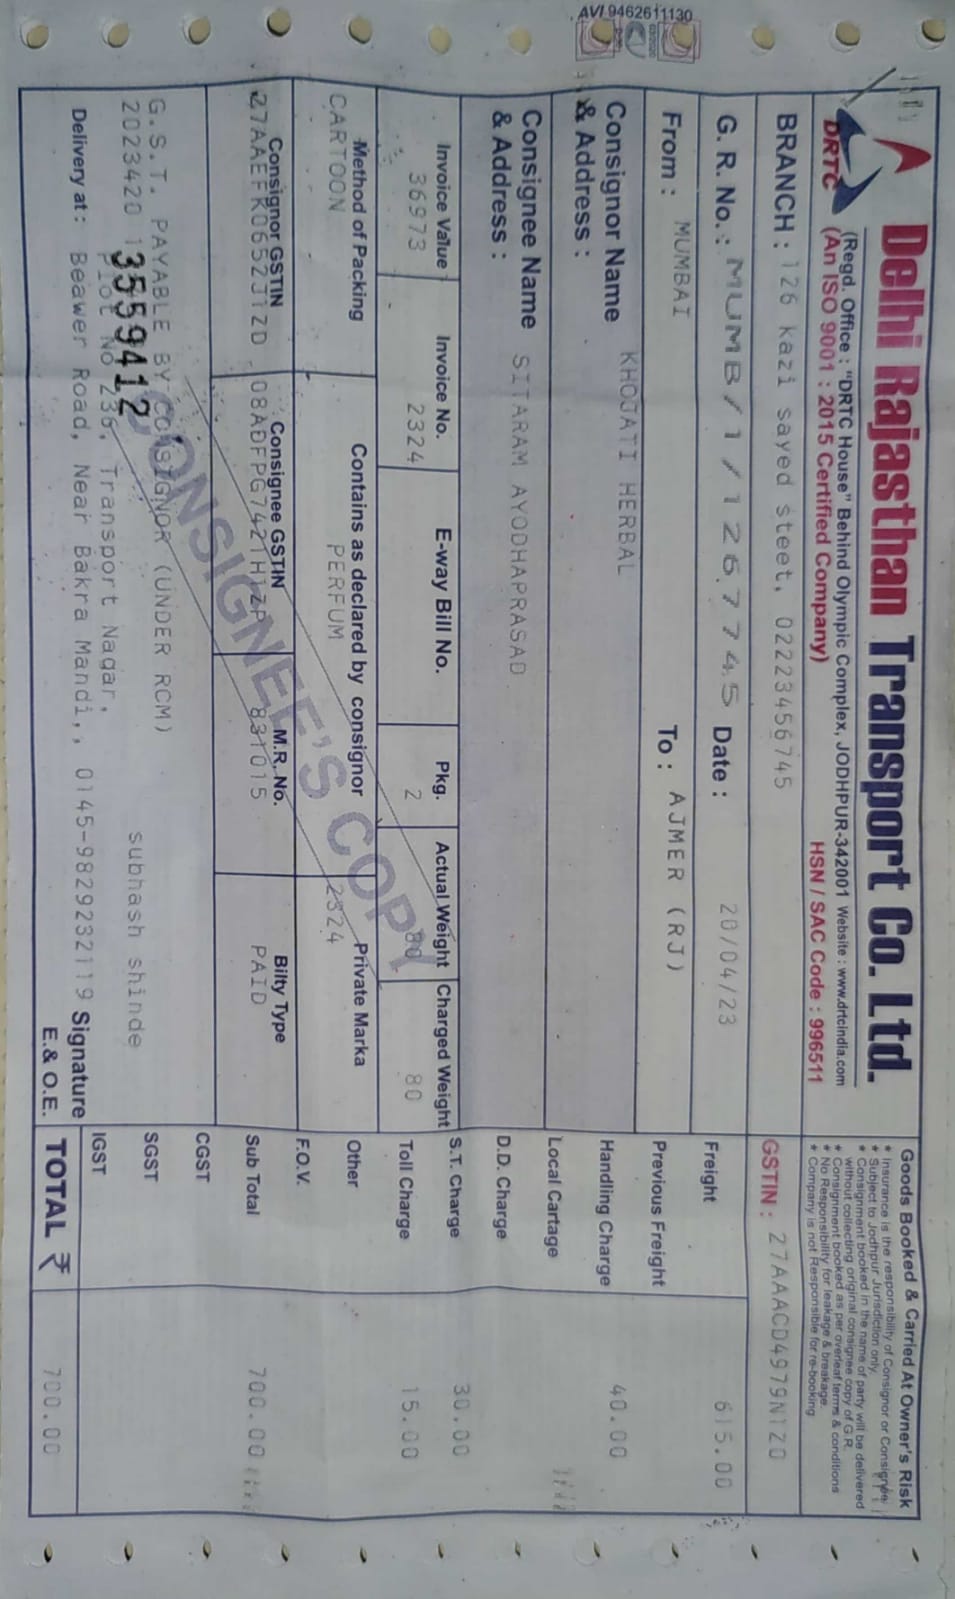 AVI 9462611130
03/2020
Delhi Rajasthan Transport Co. Ltd.
DRTC
(Regd. Office : "DRTC House" Behind Olympic Complex, JODHPUR-342001 Website : www.drtcindia.com
(An ISO 9001 : 2015 Certified Company)
HSN / SAC Code : 996511
Goods Booked & Carried At Owner's Risk
* Insurance is the responsibility of Consignor or Consignee
* Subject to Jodhpur Jurisdiction only.
* Consignment booked in the name of party will be delivered
without collecting original consignee copy of G.R.
* Consignment booked as per overleaf terms & conditions
* No Responsibility for leakage & breakage.
* Company is not Responsible for re-booking
BRANCH : 126 kazi sayed steet, 02223456745
GSTIN : 27AAACD4979N1Z0
G. R. No. : MUMB/1/1267745 Date : 20/04/23
Freight 615.00
From : MUMBAI To : AJMER (RJ)
Previous Freight
Consignor Name KHOJATI HERBAL
& Address :
Handling Charge 40.00
Local Cartage
Consignee Name SITARAM AYODHAPRASAD
& Address :
D.D. Charge
S.T. Charge 30.00
Invoice Value Invoice No. E-way Bill No. Pkg. Actual Weight Charged Weight
36973 2324 2 80 80
Toll Charge 15.00
Method of Packing Contains as declared by consignor Private Marka
CARTOON PERFUM 2324
Other
F.O.V.
Consignor GSTIN Consignee GSTIN M.R. No. Bilty Type
27AAEFK0652J1ZD 08ADFPG7421H1ZP 831015 PAID
Sub Total 700.00
CONSIGNEE'S COPY
CGST
G.S.T. PAYABLE BY CONSIGNOR (UNDER RCM)
SGST
2023420 subhash shinde
3559412
Plot No 236, Transport Nagar,
IGST
Delivery at : Beawer Road, Near Bakra Mandi,, 0145-9829232119 Signature
E.& O.E.
TOTAL ₹ 700.00